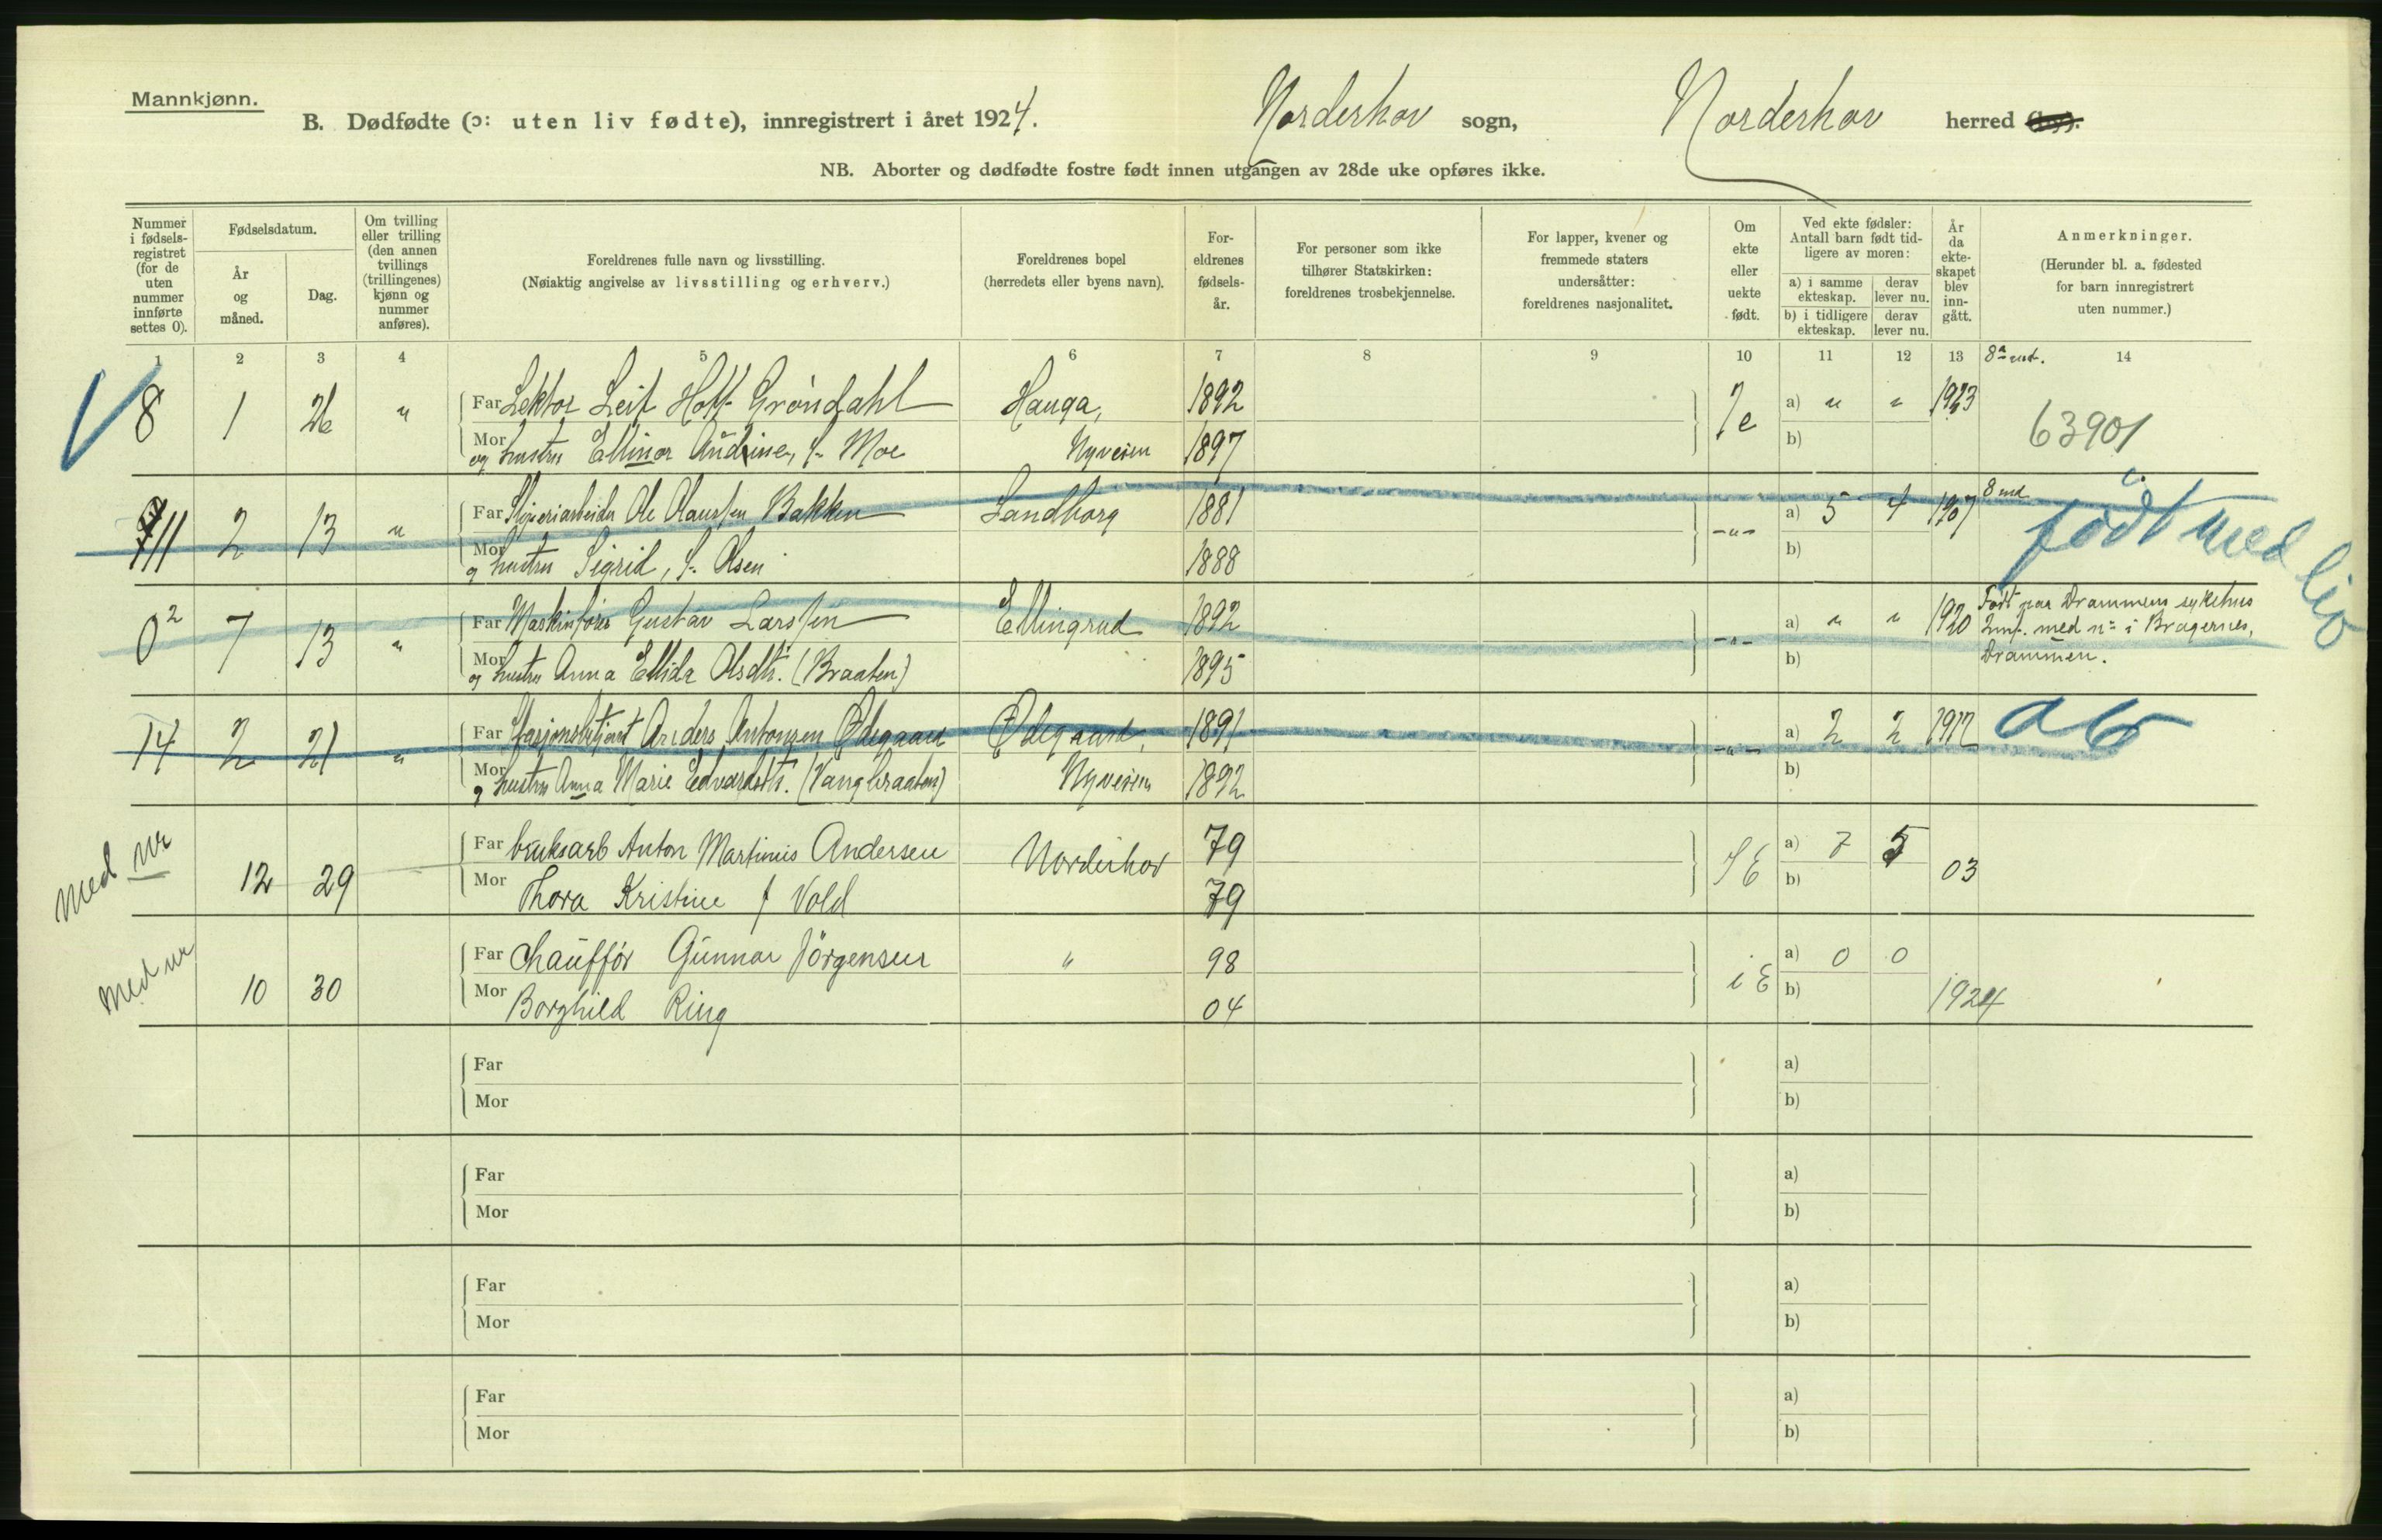 Mannkjønn.
B. Dødfødte (ɔ: uten liv fødte), innregistrert i året 1924. Norderhov sogn, Norderhov herred (by).
NB. Aborter og dødfødte fostre født innen utgangen av 28de uke opføres ikke.
Nummer i fødsels-registret (for de uten nummer innførte settes 0).
Fødselsdatum.
År og måned.
Dag.
Om tvilling eller trilling (den annen tvillings (trillingenes) kjønn og nummer anføres).
Foreldrenes fulle navn og livsstilling.
(Nøiaktig angivelse av livsstilling og erhverv.)
Foreldrenes bopel
(herredets eller byens navn).
For-eldrenes fødsels-år.
For personer som ikke tilhører Statskirken: foreldrenes trosbekjennelse.
For lapper, kvener og fremmede staters undersåtter: foreldrenes nasjonalitet.
Om ekte eller uekte født.
Ved ekte fødsler: Antall barn født tid-ligere av moren:
a) i samme ekteskap. derav lever nu.
b) i tidligere ekteskap. derav lever nu.
År da ekte-skapet blev inn-gått.
Anmerkninger.
(Herunder bl. a. fødested for barn innregistrert uten nummer.)
1 2 3 4 5 6 7 8 9 10 11 12 13 14
8 1 26 " Far Lektor Leif Hoff Gröndahl Hauga, 1892 a) " " 1923 63901
Mor og hustru Ellinor Audine, f. Moe Nyveien 1897 b)
11 2 13 " Far Sliperiarbeider Ole Olaussen Bakken Sandborg 1881 -"- a) 5 4 1907 8 md. født med liv
Mor og hustru Sigrid, f. Olsen 1888 b)
0 2 7 13 " Far Maskinfører Gustav Larssen Ellingrud 1892 -"- a) " " 1920 Født paa Drammens sykehus
Mor og hustru Anna Ellida Olsdtr. (Braaten) 1895 b) Innf. med nr i Bragernes, Drammen.
14 2 21 " Far Stasjonsbetjent Anders Antonsen Ødegaard Ødegaard, 1891 -"- a) 2 2 1912 ab
Mor og hustru Anna Marie Edvardsdtr. (Vangbraaten) Nyveien 1892 b)
med nr 12 29 Far bruksarb Anton Martinius Andersen Norderhov 79 a) 7 5 03
Mor Thora Kristine f Vold 79 b)
med nr 10 30 Far Chauffør Gunnar Jörgensen " 98 i E a) 0 0 1924
Mor Borghild Ring 04 b)
Far a)
Mor b)
Far a)
Mor b)
Far a)
Mor b)
Far a)
Mor b)